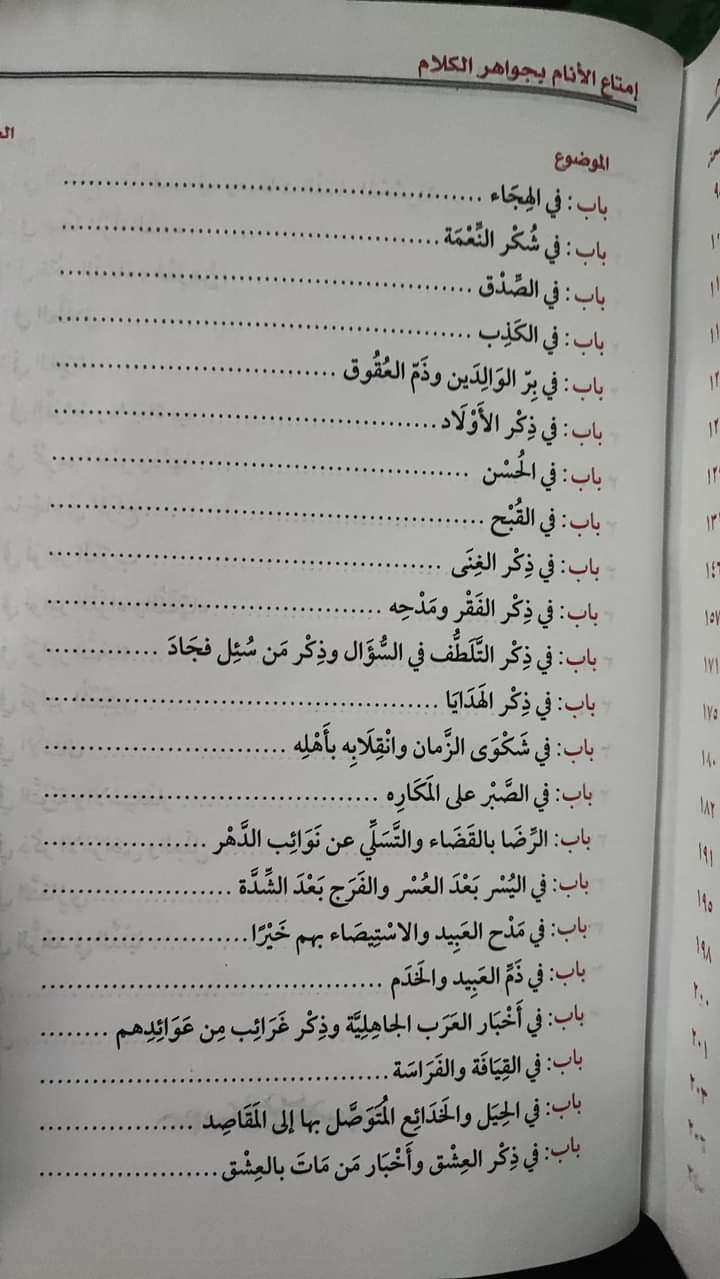 إمتاع الأنام بجواهر الكلام
الموضوع
باب: في الهِجَاء
باب: في شُكْر النِّعْمَة
باب: في الصِّدْق
باب: في الكَذِب
باب: في بِرّ الوَالِدَين وذَمّ العُقُوق
باب: في ذِكْر الأَوْلَاد
باب: في الحُسْن
باب: في القُبْح
باب: في ذِكْر الغِنَى
باب: في ذِكْر الفَقْر ومَدْحِه
باب: في ذِكْر التَّلَطُّف في السُّؤَال وذِكْر مَن سُئِل فجَادَ
باب: في ذِكْر الهَدَايَا
باب: في شَكْوَى الزَّمان وانْقِلَابِه بأَهْلِه
باب: في الصَّبْر على المَكَارِه
باب: الرِّضَا بالقَضَاء والتَّسَلِّي عن نَوَائِب الدَّهْر
باب: في اليُسْر بَعْدَ العُسْر والفَرَج بَعْدَ الشِّدَّة
باب: في مَدْح العَبِيد والاسْتِيصَاء بهم خَيْرًا
باب: في ذَمِّ العَبِيد والخَدَم
باب: في أَخْبَار العَرَب الجاهِلِيَّة وذِكْر غَرَائِب مِن عَوَائِدِهم
باب: في القِيَافَة والفَرَاسَة
باب: في الحِيَل والخَدَائِع المُتَوَصَّل بها إلى المَقَاصِد
باب: في ذِكْر العِشْق وأَخْبَار مَن مَاتَ بالعِشْق
١٥٧
١٧١
١٧٥
١٨٠
١٨٢
١٩١
١٩٥
١٩٨
٢٠٠
٢٠١
٢٠٣